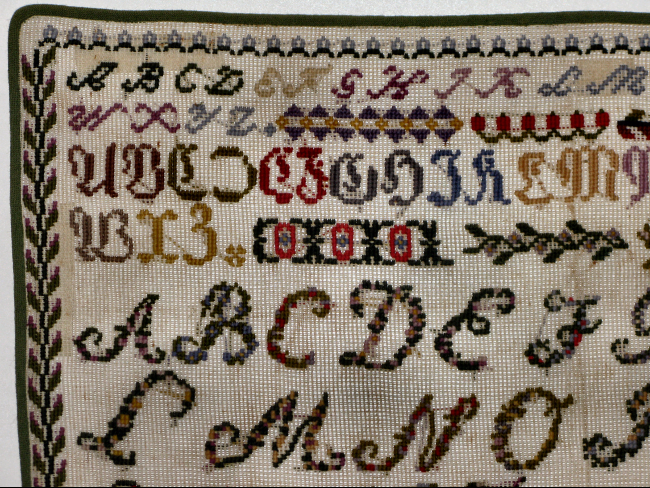 A B C D E F G H I K L M
W X Y Z.
A B C D E F G H I K L M
W X Z.
A B C D E F
L M N O